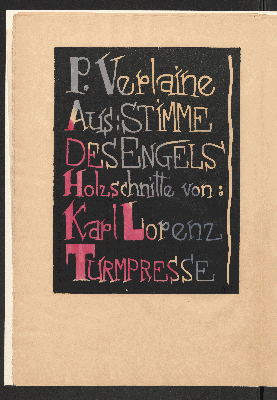 P. Verlaine
Aus: STIMME
DES ENGELS
Holzschnitte von:
Karl Lorenz
TURMPRESSE